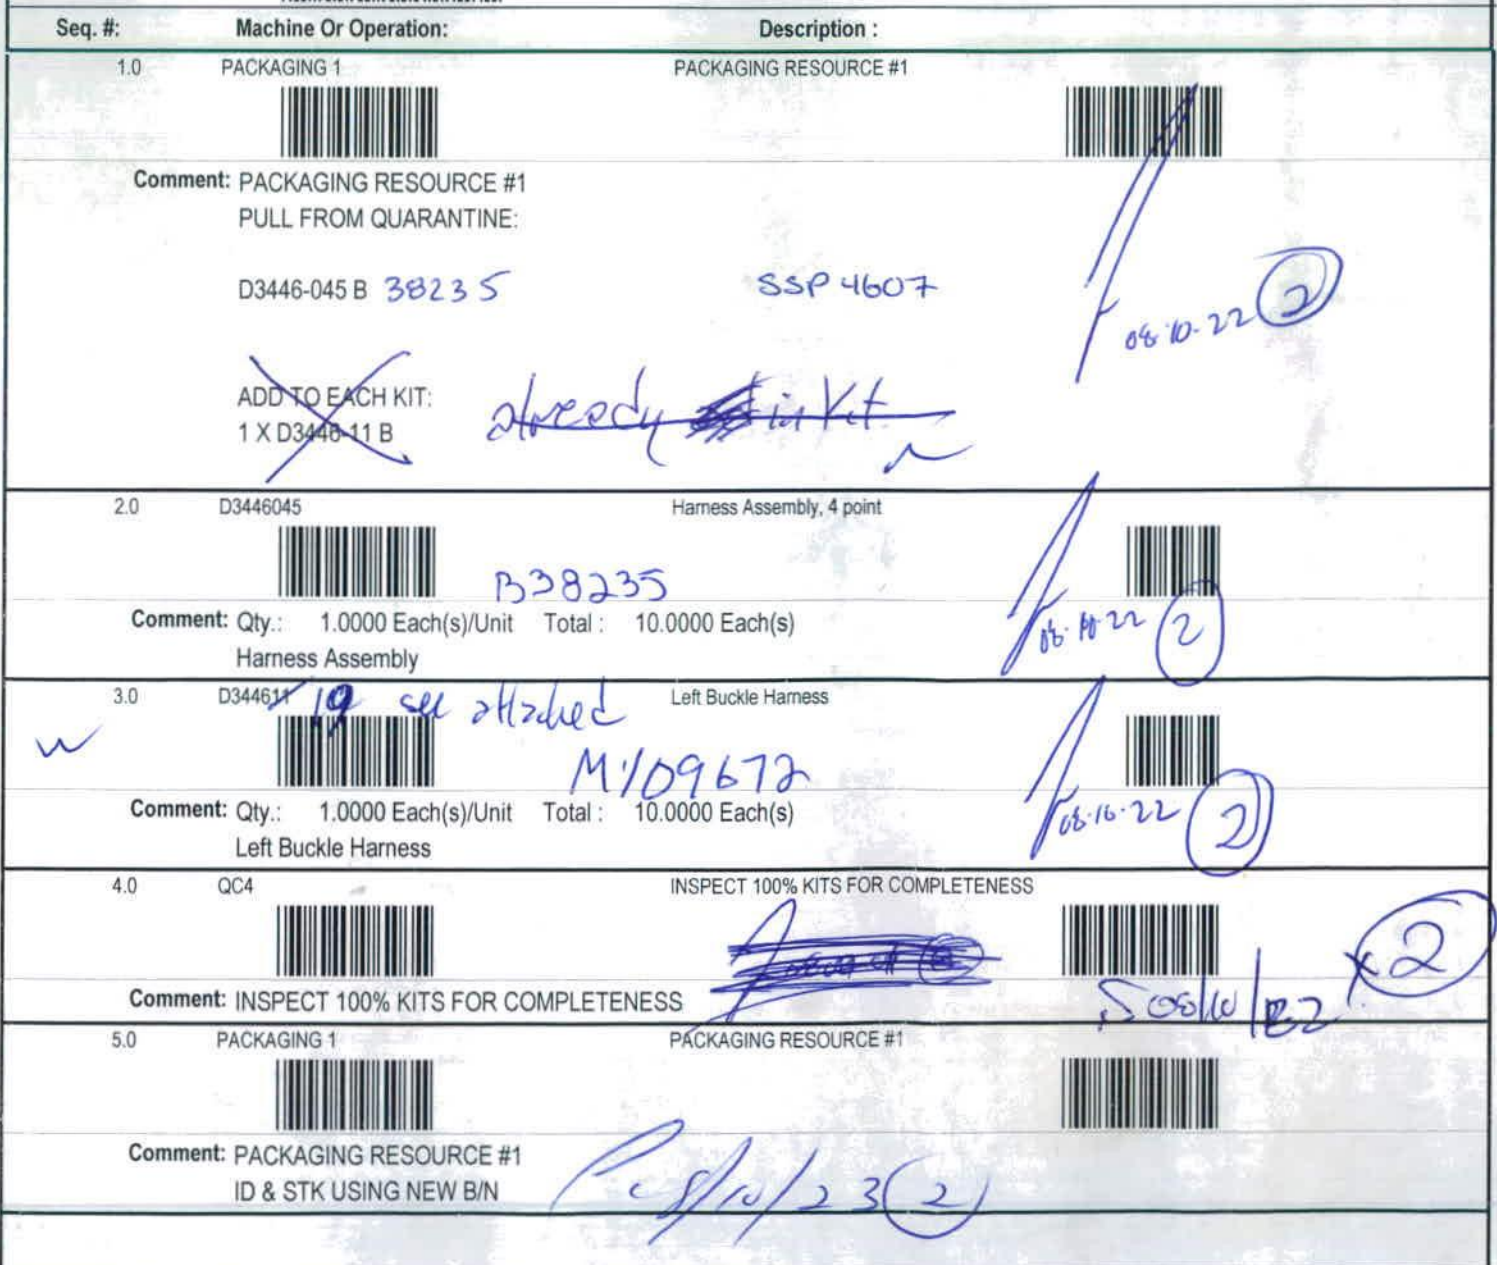 Seq. #: Machine Or Operation: Description :
1.0 PACKAGING 1 PACKAGING RESOURCE #1
Comment: PACKAGING RESOURCE #1
PULL FROM QUARANTINE:
D3446-045 B 38235 SSP 4607
08-10-22 2
ADD TO EACH KIT: already in Kit
1 X D3446-11 B
2.0 D3446045 Harness Assembly, 4 point
B38235
Comment: Qty.: 1.0000 Each(s)/Unit Total : 10.0000 Each(s)
08-10-22 2
Harness Assembly
3.0 D344611 19 see attached Left Buckle Harness
M109672
Comment: Qty.: 1.0000 Each(s)/Unit Total : 10.0000 Each(s)
08-10-22 2
Left Buckle Harness
4.0 QC4 INSPECT 100% KITS FOR COMPLETENESS
x 2
Comment: INSPECT 100% KITS FOR COMPLETENESS
08/10/22
5.0 PACKAGING 1 PACKAGING RESOURCE #1
Comment: PACKAGING RESOURCE #1
ID & STK USING NEW B/N 08/10/23 2